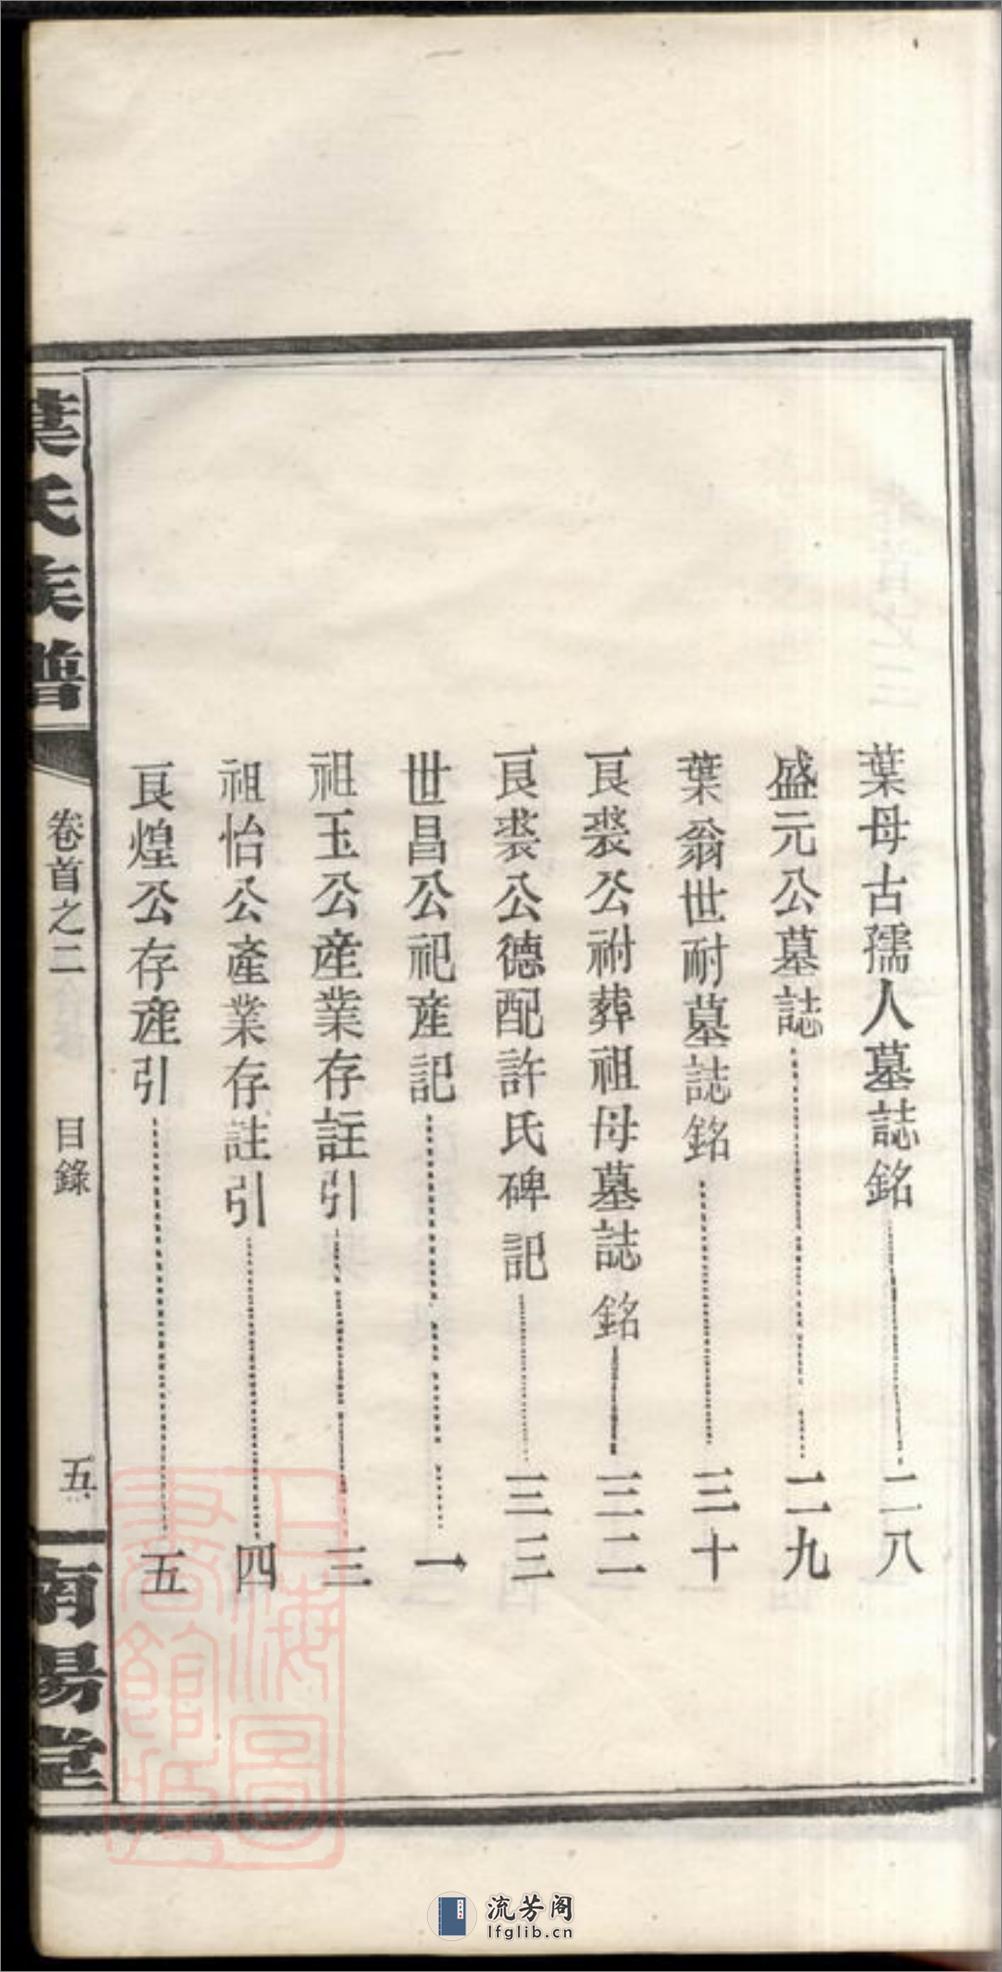 葉母古孺人墓誌銘 二八
盛元公墓誌 二九
葉翁世耐墓誌銘 三十
良裘公祔葬祖母墓誌銘 三二
良裘公德配許氏碑記 三三
世昌公祀產記 一
祖玉公產業存註引 三
祖怡公產業存註引 四
良煌公存產引 五
葉氏族譜 卷首之二 目錄 五 南陽堂
上海圖
書館藏
流芳阁
lfglib.cn